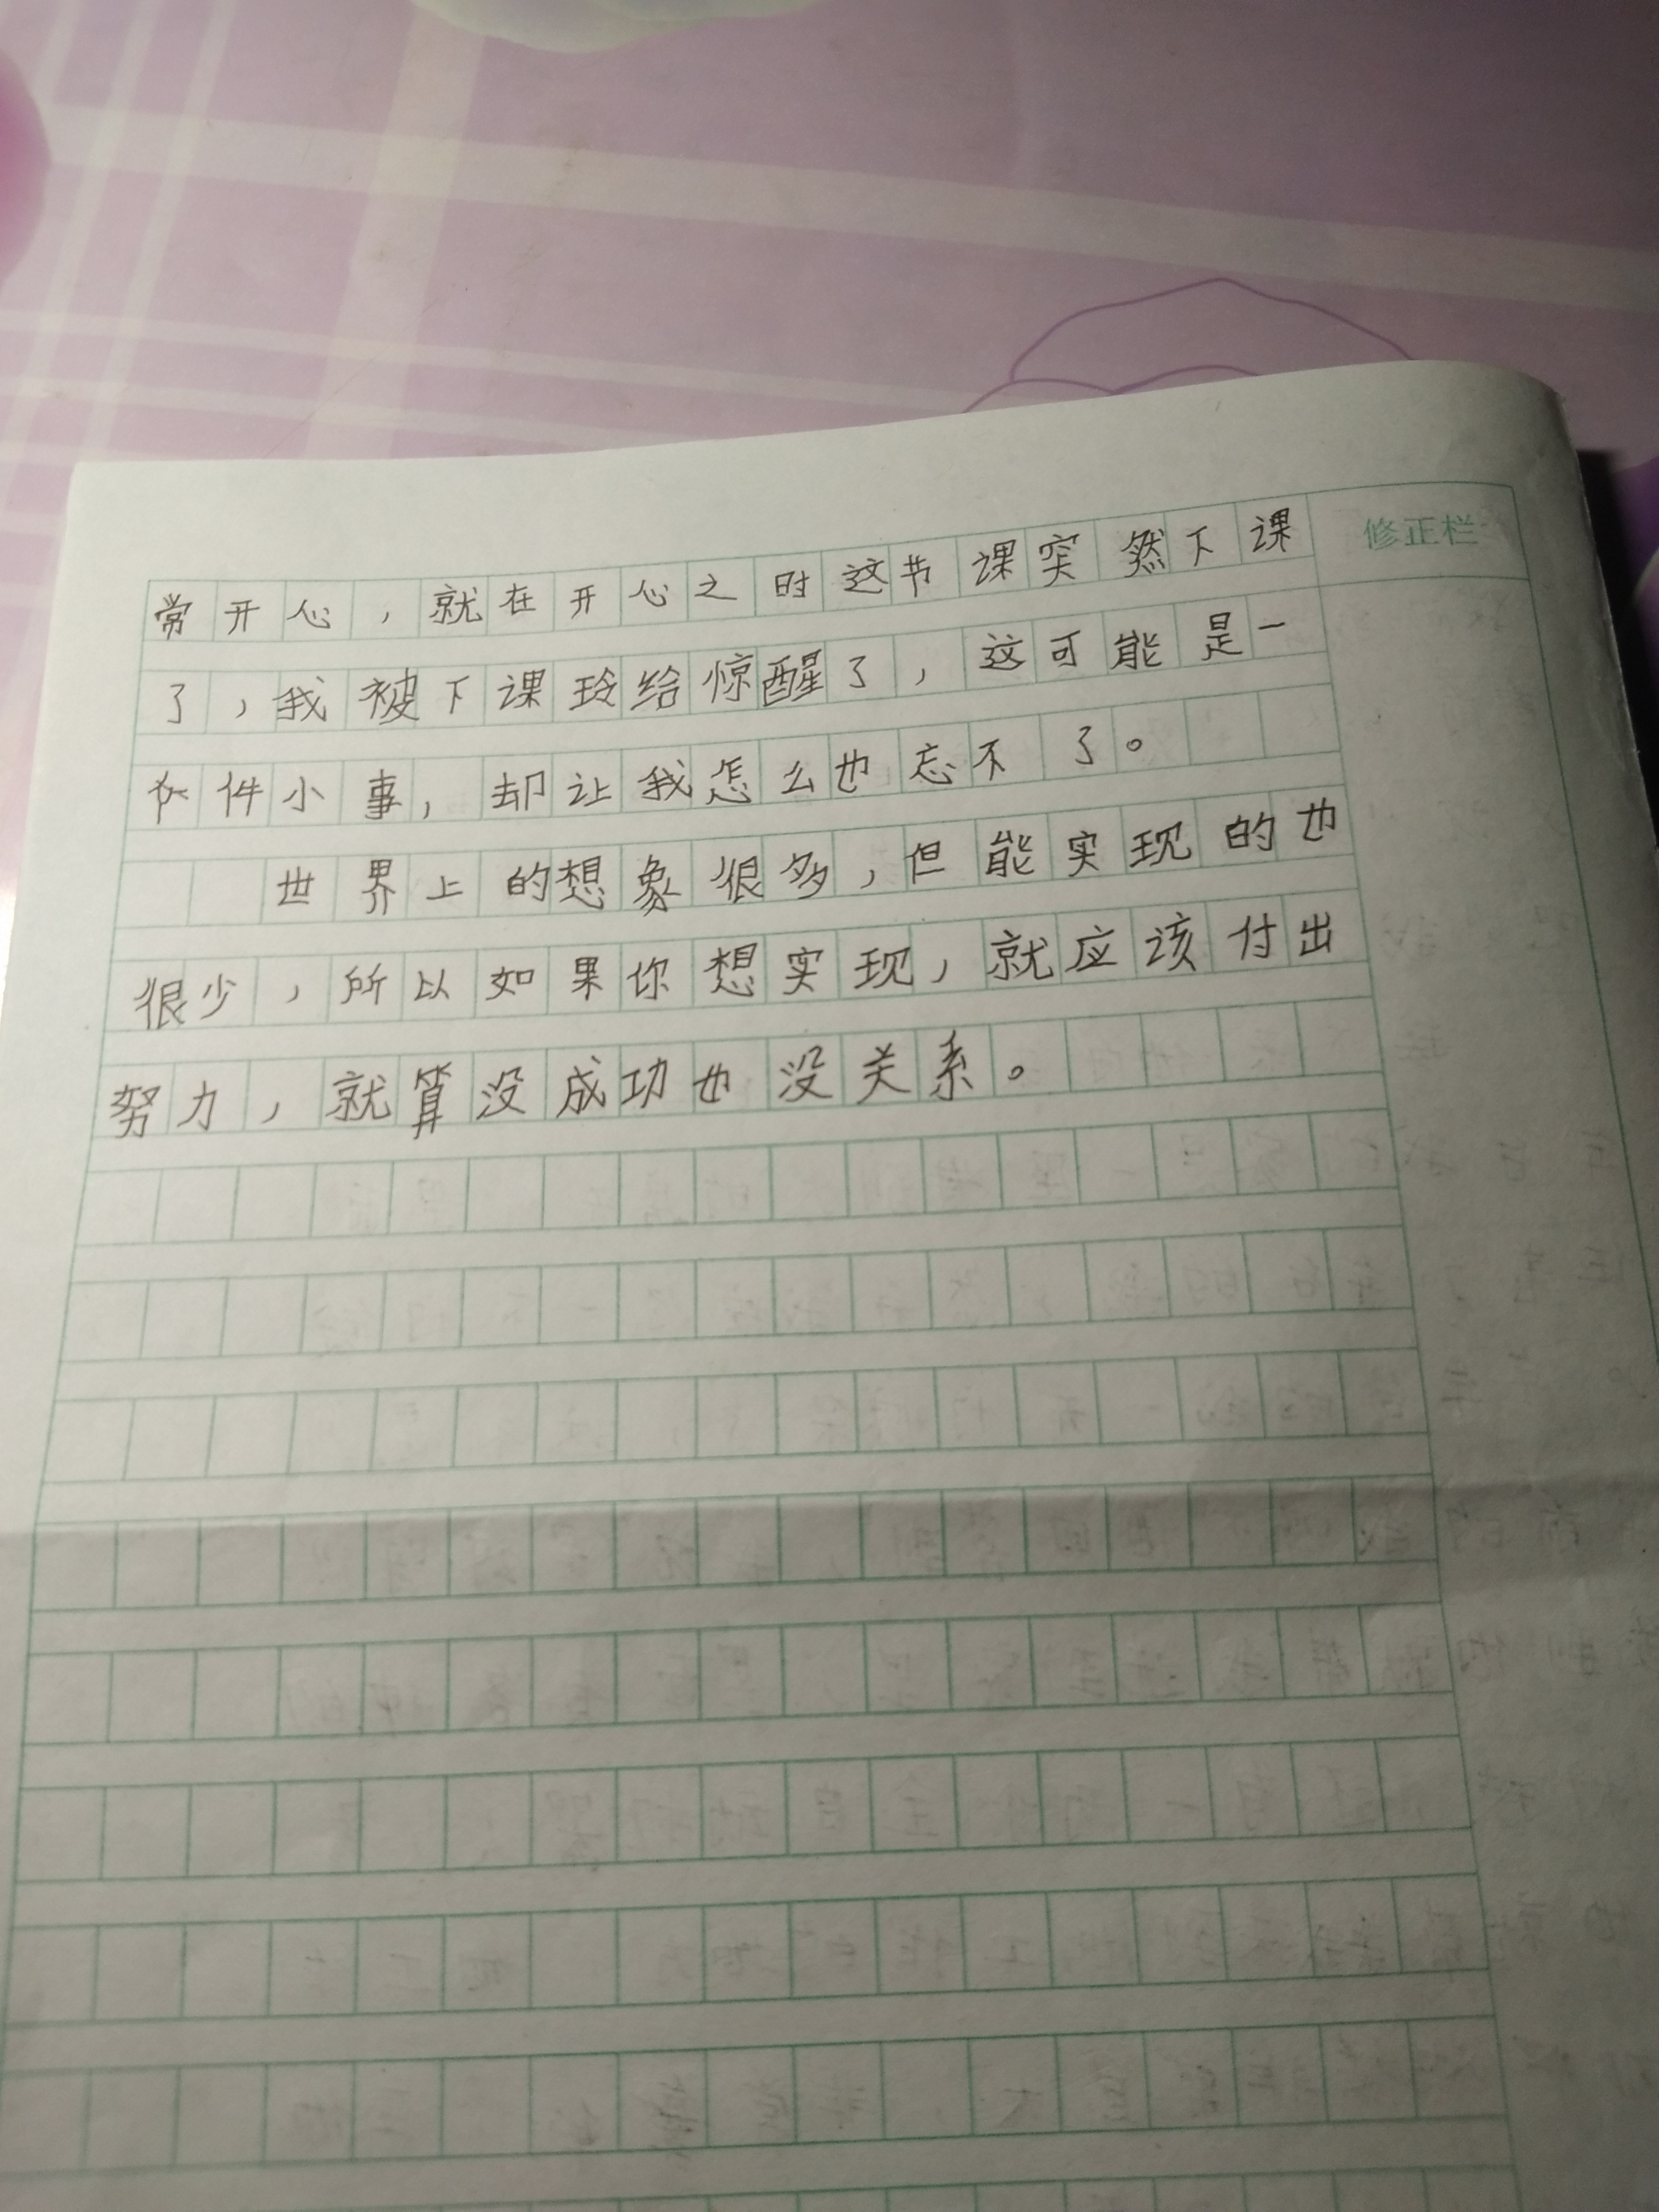 修正栏
常开心，就在开心之时这节课突然下课
了，我被下课玲给惊醒了，这可能是一
件小事，却让我怎么也忘不了。
世界上的想象很多，但能实现的也
很少，所以如果你想实现，就应该付出
努力，就算没成功也没关系。